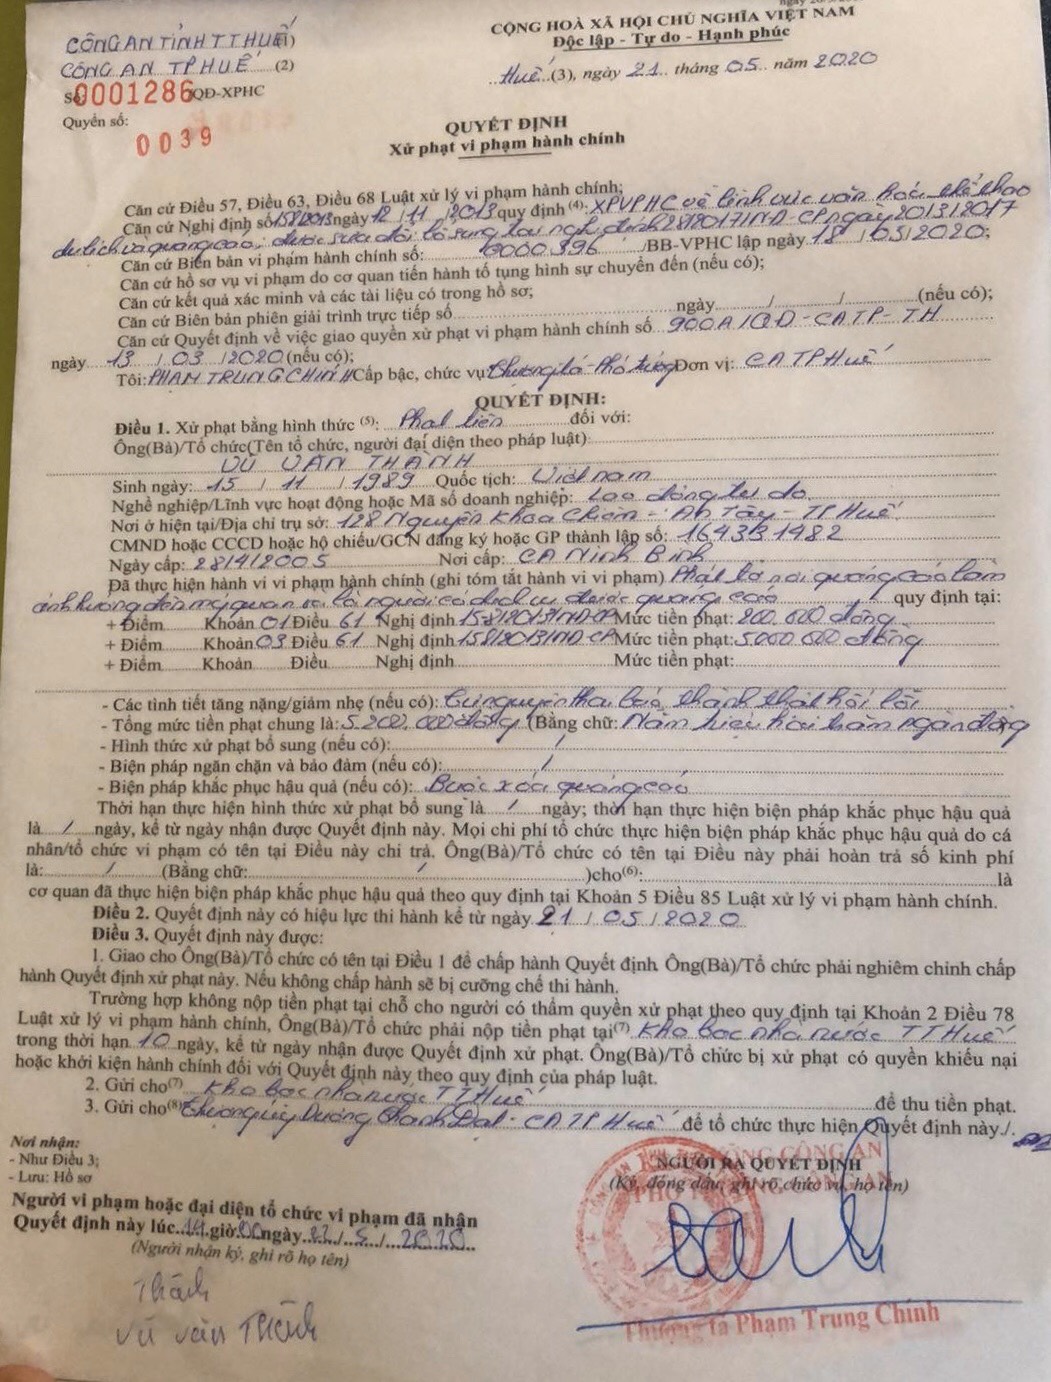 CỘNG HOÀ XÃ HỘI CHỦ NGHĨA VIỆT NAM
Độc lập - Tự do - Hạnh phúc
CÔNG AN TỈNH T T HUẾ (1)
CÔNG AN TP HUẾ (2)
Số 0001286 /QĐ-XPHC
Quyển số: 0039
Huế (3), ngày 21 tháng 05 năm 2020
QUYẾT ĐỊNH
Xử phạt vi phạm hành chính
Căn cứ Điều 57, Điều 63, Điều 68 Luật xử lý vi phạm hành chính;
Căn cứ Nghị định số 158/2013 ngày 12/11/2013 quy định (4): XPVPHC về lĩnh vực văn hoá thể thao
du lịch và quảng cáo; được sửa đổi bổ sung tại nghị định 28/2017/NĐ-CP ngày 20/3/2017
Căn cứ Biên bản vi phạm hành chính số: 0000396 /BB-VPHC lập ngày 18/05/2020;
Căn cứ hồ sơ vụ vi phạm do cơ quan tiến hành tố tụng hình sự chuyển đến (nếu có);
Căn cứ kết quả xác minh và các tài liệu có trong hồ sơ;
Căn cứ Biên bản phiên giải trình trực tiếp số ngày / / (nếu có);
Căn cứ Quyết định về việc giao quyền xử phạt vi phạm hành chính số 900A/QĐ-CATP-TH
ngày 13/03/2020 (nếu có);
Tôi: PHẠM TRUNG CHÍNH Cấp bậc, chức vụ: Thượng tá - Phó trưởng Đơn vị: CA TP Huế
QUYẾT ĐỊNH:
Điều 1. Xử phạt bằng hình thức (5): Phạt tiền đối với:
Ông(Bà)/Tổ chức(Tên tổ chức, người đại diện theo pháp luật):
VŨ VĂN THÀNH
Sinh ngày: 15/11/1989 Quốc tịch: Việt nam
Nghề nghiệp/Lĩnh vực hoạt động hoặc Mã số doanh nghiệp: Lao động tự do
Nơi ở hiện tại/Địa chỉ trụ sở: 128 Nguyễn Khoa Chiêm - An Tây - TP Huế
CMND hoặc CCCD hoặc hộ chiếu/GCN đăng ký hoặc GP thành lập số: 164331482
Ngày cấp: 28/4/2005 Nơi cấp: CA Ninh Bình
Đã thực hiện hành vi vi phạm hành chính (ghi tóm tắt hành vi vi phạm) Phát tờ rơi quảng cáo làm
ảnh hưởng đến mỹ quan và là người có dịch vụ được quảng cáo quy định tại:
+ Điểm Khoản 01 Điều 61 Nghị định 158/2013/NĐ-CP Mức tiền phạt: 200.000 đồng
+ Điểm Khoản 03 Điều 61 Nghị định 158/2013/NĐ-CP Mức tiền phạt: 5000.000 đồng
+ Điểm Khoản Điều Nghị định Mức tiền phạt:
- Các tình tiết tăng nặng/giảm nhẹ (nếu có): Tự nguyện khai báo, thành thật hối lỗi
- Tổng mức tiền phạt chung là: 5.200.000 đồng (Bằng chữ: Năm triệu hai trăm ngàn đồng
- Hình thức xử phạt bổ sung (nếu có): /
- Biện pháp ngăn chặn và bảo đảm (nếu có): /
- Biện pháp khắc phục hậu quả (nếu có): Buộc xóa quảng cáo
Thời hạn thực hiện hình thức xử phạt bổ sung là / ngày; thời hạn thực hiện biện pháp khắc phục hậu quả
là / ngày, kể từ ngày nhận được Quyết định này. Mọi chi phí tổ chức thực hiện biện pháp khắc phục hậu quả do cá
nhân/tổ chức vi phạm có tên tại Điều này chi trả. Ông(Bà)/Tổ chức có tên tại Điều này phải hoàn trả số kinh phí
là: / (Bằng chữ: / )cho(6): là
cơ quan đã thực hiện biện pháp khắc phục hậu quả theo quy định tại Khoản 5 Điều 85 Luật xử lý vi phạm hành chính.
Điều 2. Quyết định này có hiệu lực thi hành kể từ ngày 21/05/2020
Điều 3. Quyết định này được:
1. Giao cho Ông(Bà)/Tổ chức có tên tại Điều 1 để chấp hành Quyết định Ông(Bà)/Tổ chức phải nghiêm chỉnh chấp
hành Quyết định xử phạt này. Nếu không chấp hành sẽ bị cưỡng chế thi hành.
Trường hợp không nộp tiền phạt tại chỗ cho người có thẩm quyền xử phạt theo quy định tại Khoản 2 Điều 78
Luật xử lý vi phạm hành chính, Ông(Bà)/Tổ chức phải nộp tiền phạt tại(7) Kho bạc nhà nước T T Huế
trong thời hạn 10 ngày, kể từ ngày nhận được Quyết định xử phạt. Ông(Bà)/Tổ chức bị xử phạt có quyền khiếu nại
hoặc khởi kiện hành chính đối với Quyết định này theo quy định của pháp luật.
2. Gửi cho(7) Kho bạc nhà nước T T Huế để thu tiền phạt.
3. Gửi cho(8) Thượng úy Dương Thanh Đạt - CA TP Huế để tổ chức thực hiện Quyết định này./.
Nơi nhận:
- Như Điều 3;
- Lưu: Hồ sơ
NGƯỜI RA QUYẾT ĐỊNH
(Ký, đóng dấu, ghi rõ, chức vụ, họ tên)
Người vi phạm hoặc đại diện tổ chức vi phạm đã nhận
Quyết định này lúc 14 giờ 00 ngày 22/5/2020
(Người nhận ký, ghi rõ họ tên)
Thành
Vũ Văn Thành
Thượng tá Phạm Trung Chính